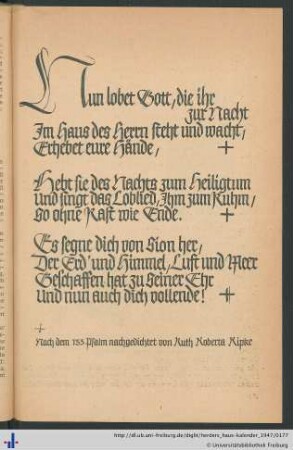 Nun lobet Gott, die ihr
zur Nacht
Im Haus des Herrn steht und wacht,
Erhebet eure Hände,
Hebt sie des Nachts zum Heiligtum
und singt das Loblied, Ihm zum Ruhm,
So ohne Rast wie Ende.
Es segne dich von Sion her,
Der Erd' und Himmel, Luft und Meer
Geschaffen hat zu Seiner Ehr
und nun auch dich vollende!
Nach dem 133. Psalm nachgedichtet von Ruth Roberta Ripke
http://dl.ub.uni-freiburg.de/diglit/herders_haus-kalender_1947/0177
© Universitätsbibliothek Freiburg